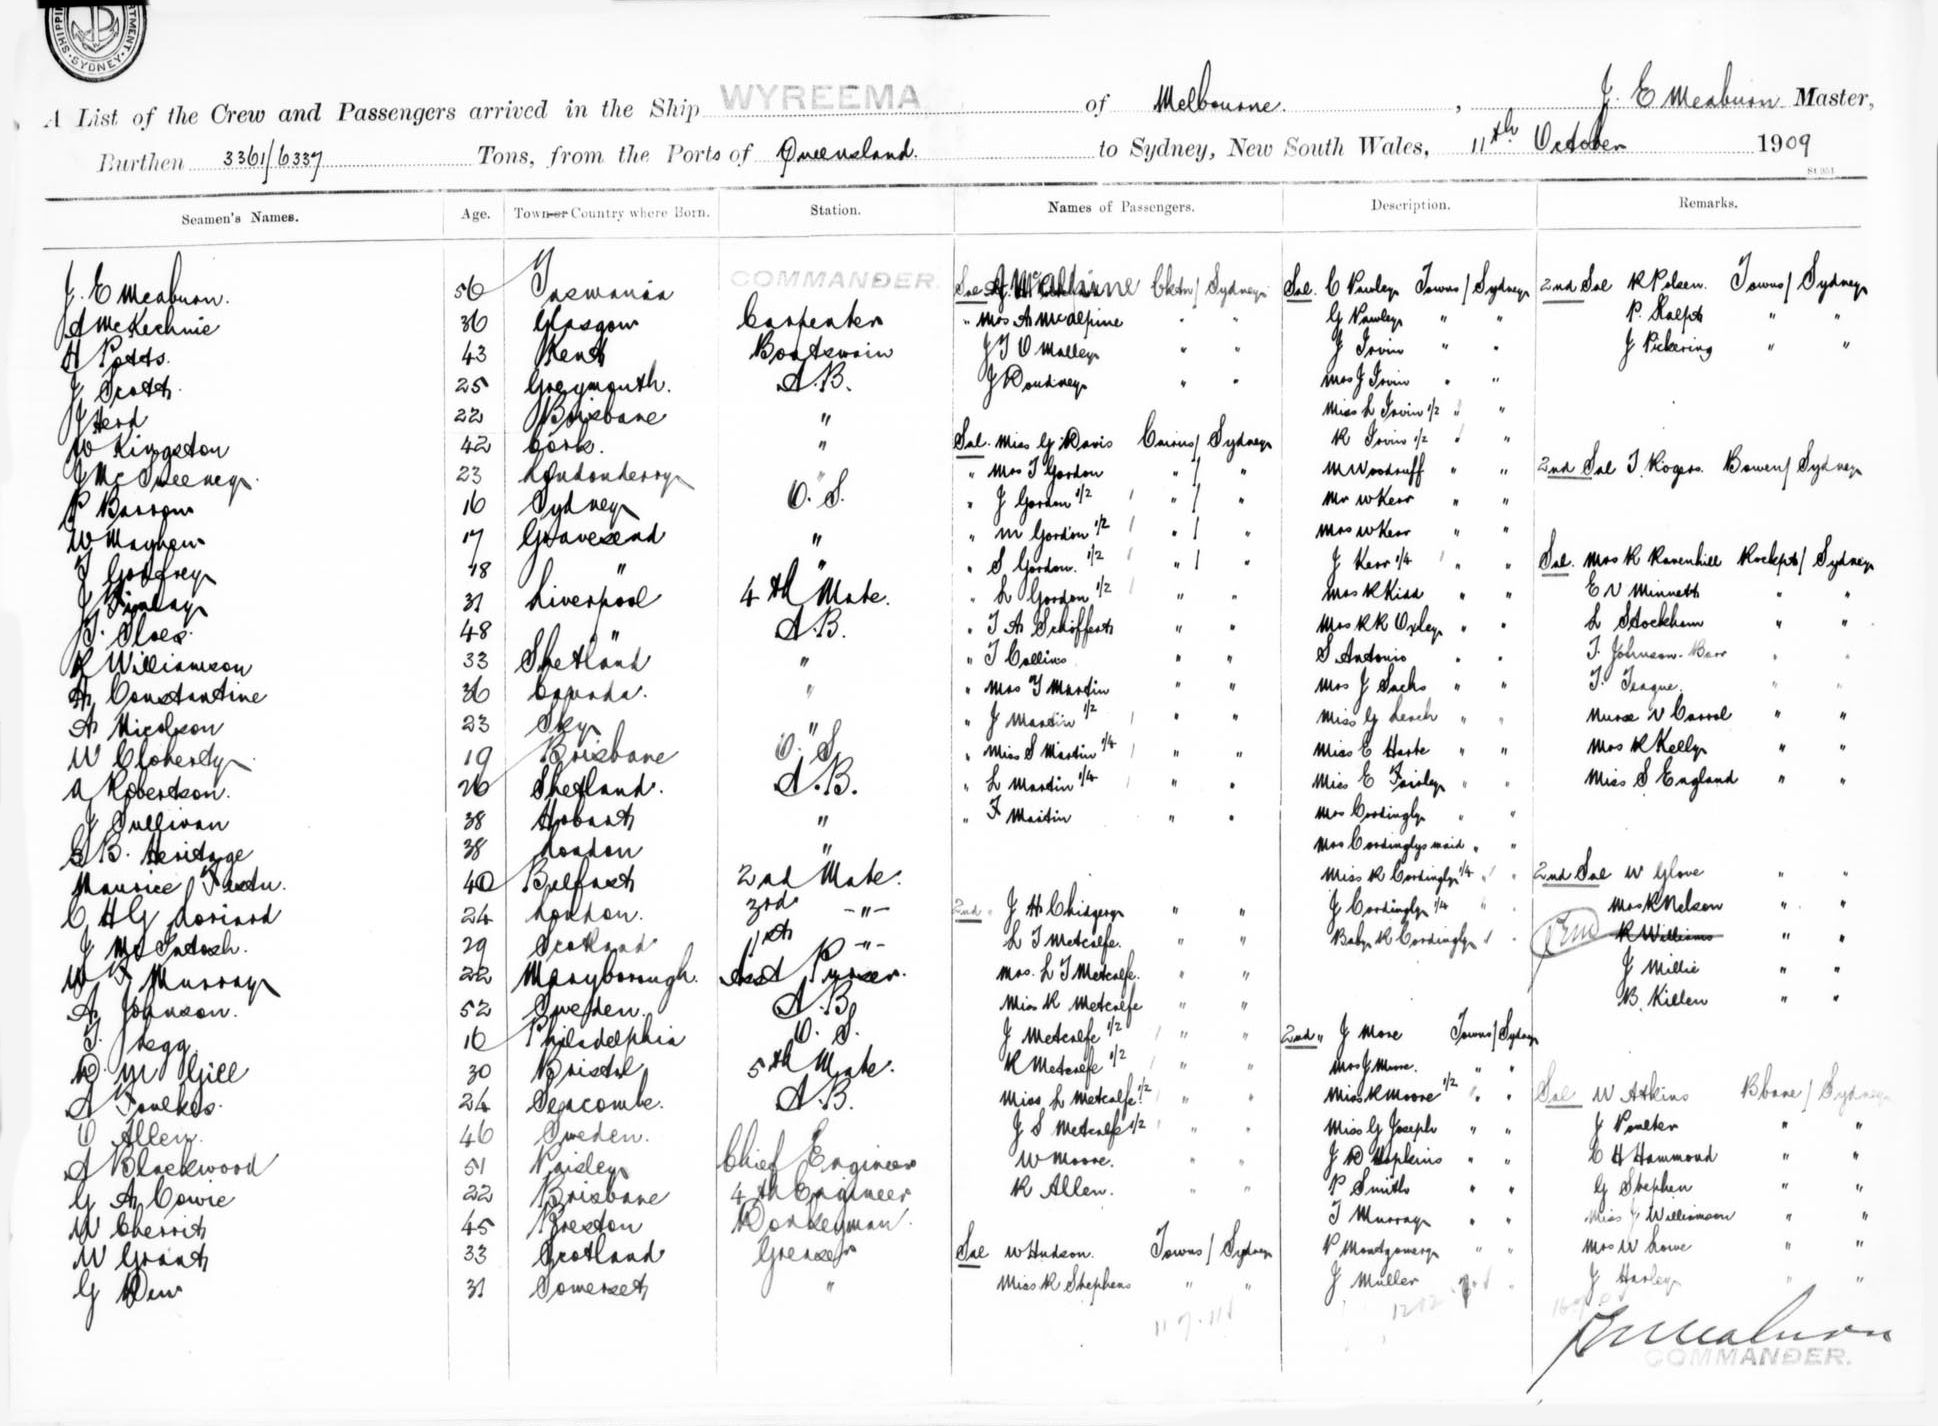 SHIPPING DEPARTMENT SYDNEY
A List of the Crew and Passengers arrived in the Ship WYREEMA of Melbourne, J. E Meaburn Master,
Burthen 3361/6337 Tons, from the Ports of Queensland. to Sydney, New South Wales, 11th October 1909
Seamen's Names. Age. Town or Country where Born. Station. Names of Passengers. Description. Remarks.
J. E Meaburn. 56 Tasmania COMMANDER. Sal A McAlpine Cktn/ Sydney Sal. C Pawley Towns/ Sydney 2nd Sal R Polsen. Towns/ Sydney
A McKechnie 36 Glasgow Carpenter " Mrs A McAlpine " " G Pawley " " P. Ralph " "
H Potts. 43 Kent Boatswain J T O Malley " " J Irvin " " J Pickering " "
J Scott. 25 Greymouth. A.B. J Doudney " " Mrs J Irvin " "
J Herd 22 Brisbane " Miss L Irvin 1/2 " "
W Kingston 42 Cork. " Sal. Miss G Davis Cairns/ Sydney R Irvin 1/2 " "
J McSweeney. 23 Londonderry " " Mrs T Gordon " / " M Woodruff " " 2nd Sal T. Rogers. Bowen/ Sydney
P Barrow 16 Sydney O. S. " J Gordon 1/2 " / " Mr W Kerr " "
W Mayhew 17 Gravesend " " M Gordon 1/2 " / " Mrs W Kerr " "
J Godfrey 18 " " " S Gordon. 1/2 " / " J Kerr 1/4 " " Sal. Mrs R Ravenhill Rockptn/ Sydney
J Finlay 31 Liverpool 4th Mate. " L Gordon 1/2 " " Mrs R Kidd " " E V Minnett " "
T. Sloes. 48 " A.B. " T A Schoffert " " Mrs R R Oxley " " L Stockham " "
R Williamson 33 Shetland " " T Collins " " S Antonio " " T. Johnson-Barr " "
A. Constantine 36 Canada. " " Mrs T Martin " " Mrs J Sachs " " T. Teague. " "
A Nicolson 23 Sky " " J Martin 1/2 " " Miss G Leach " " Nurse V Carrol " "
W Cloherty 19 Brisbane O. S. " Miss S Martin 1/4 " " Miss E Harte " " Mrs R Kelly " "
A Robertson. 26 Shetland. A.B. " L Martin 1/4 " " Miss E Fairley " " Miss S England " "
J Sullivan 38 Hobart " " F Martin " " Mrs Cordingly " "
G B. Heritage 38 London " Mrs Cordinglys maid " "
Maurice 40 Belfast 2nd Mate. Miss R Cordingly 1/4 " " 2nd Sal W Glove " "
C H G Loriard 24 London. 3rd -"- 2nd " J H Chidgey " " J Cordingly 1/4 " " Mrs R Nelson " "
J McIntosh. 29 Scotland 1st -"- L T Metcalfe. " " Baby R Cordingly " " R Williams " "
W F Murray 22 Maryborough. Asst Purser. Mrs. L T Metcalfe. " " J Millie " "
A Johnson. 52 Sweden. A.B. Miss R Metcalfe " " B. Killen " "
T. Legg 16 Philadelphia O. S. J Metcalfe 1/2 " " 2nd " J Moore Towns/ Sydney
D. M Gill 30 Bristol 5th Mate. R Metcalfe 1/2 " " Mrs J Moore. " "
A Foulkes. 24 Seacombe. A.B. Miss L Metcalfe 1/2 " " Miss R Moore 1/2 " " Sal W Atkins Bbane/ Sydney
O Allen. 46 Sweden. J S Metcalfe 1/2 " " Miss G Joseph " " J Poulter " "
A Blackwood 51 Paisley Chief Engineer W Moore. " " J D Hopkins " " C H Hammond " "
G A Cowie 22 Brisbane 4th Engineer R Allen. " " P Smith " " G Stephen " "
W Cherrit 45 Brexton Donkeyman. T Murray " " Miss J Williamson " "
W Grant 33 Scotland Greaser Sal W Hudson. Towns/ Sydney P Montgomery " " Mrs W Lowe " "
G Dew 31 Somerset " Miss R Stephens " " J Muller " " J Harley " "
J E Meaburn
COMMANDER.